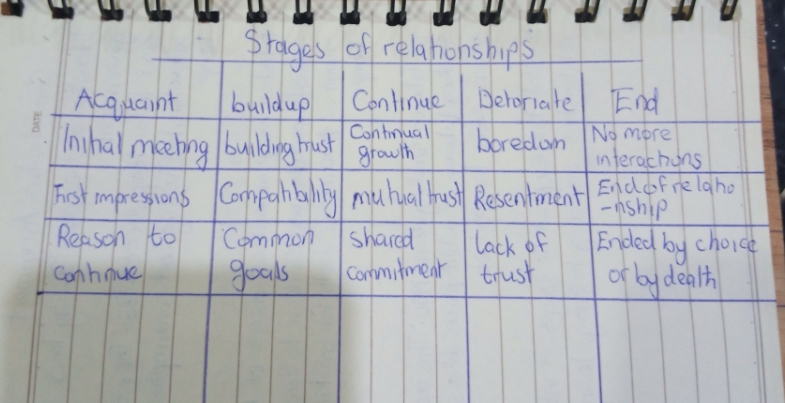 Stages of relationships
DATE
Acquaint buildup Continue Detoriate End
Initial meeting building trust Continual growth boredom No more interactions
First impressions Compatibility mutual trust Resentment End of relatio-nship
Reason to continue Common goals shared commitment lack of trust Ended by choice or by death